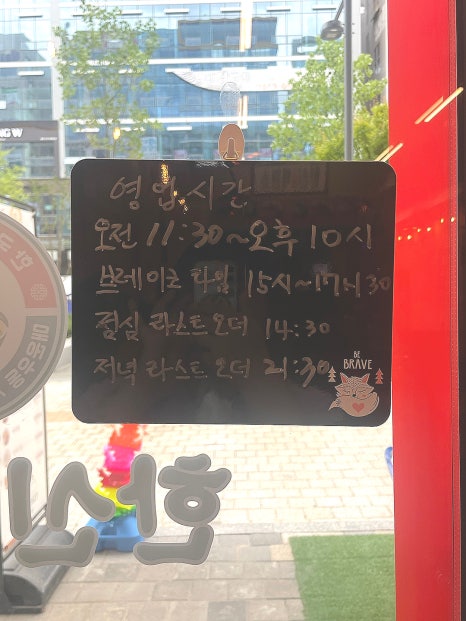 영업시간
오전 11:30~오후 10시
브레이크 타임 15시~17시 30
점심 라스트오더 14:30
저녁 라스트오더 21:30
BE
BRAVE
신선한